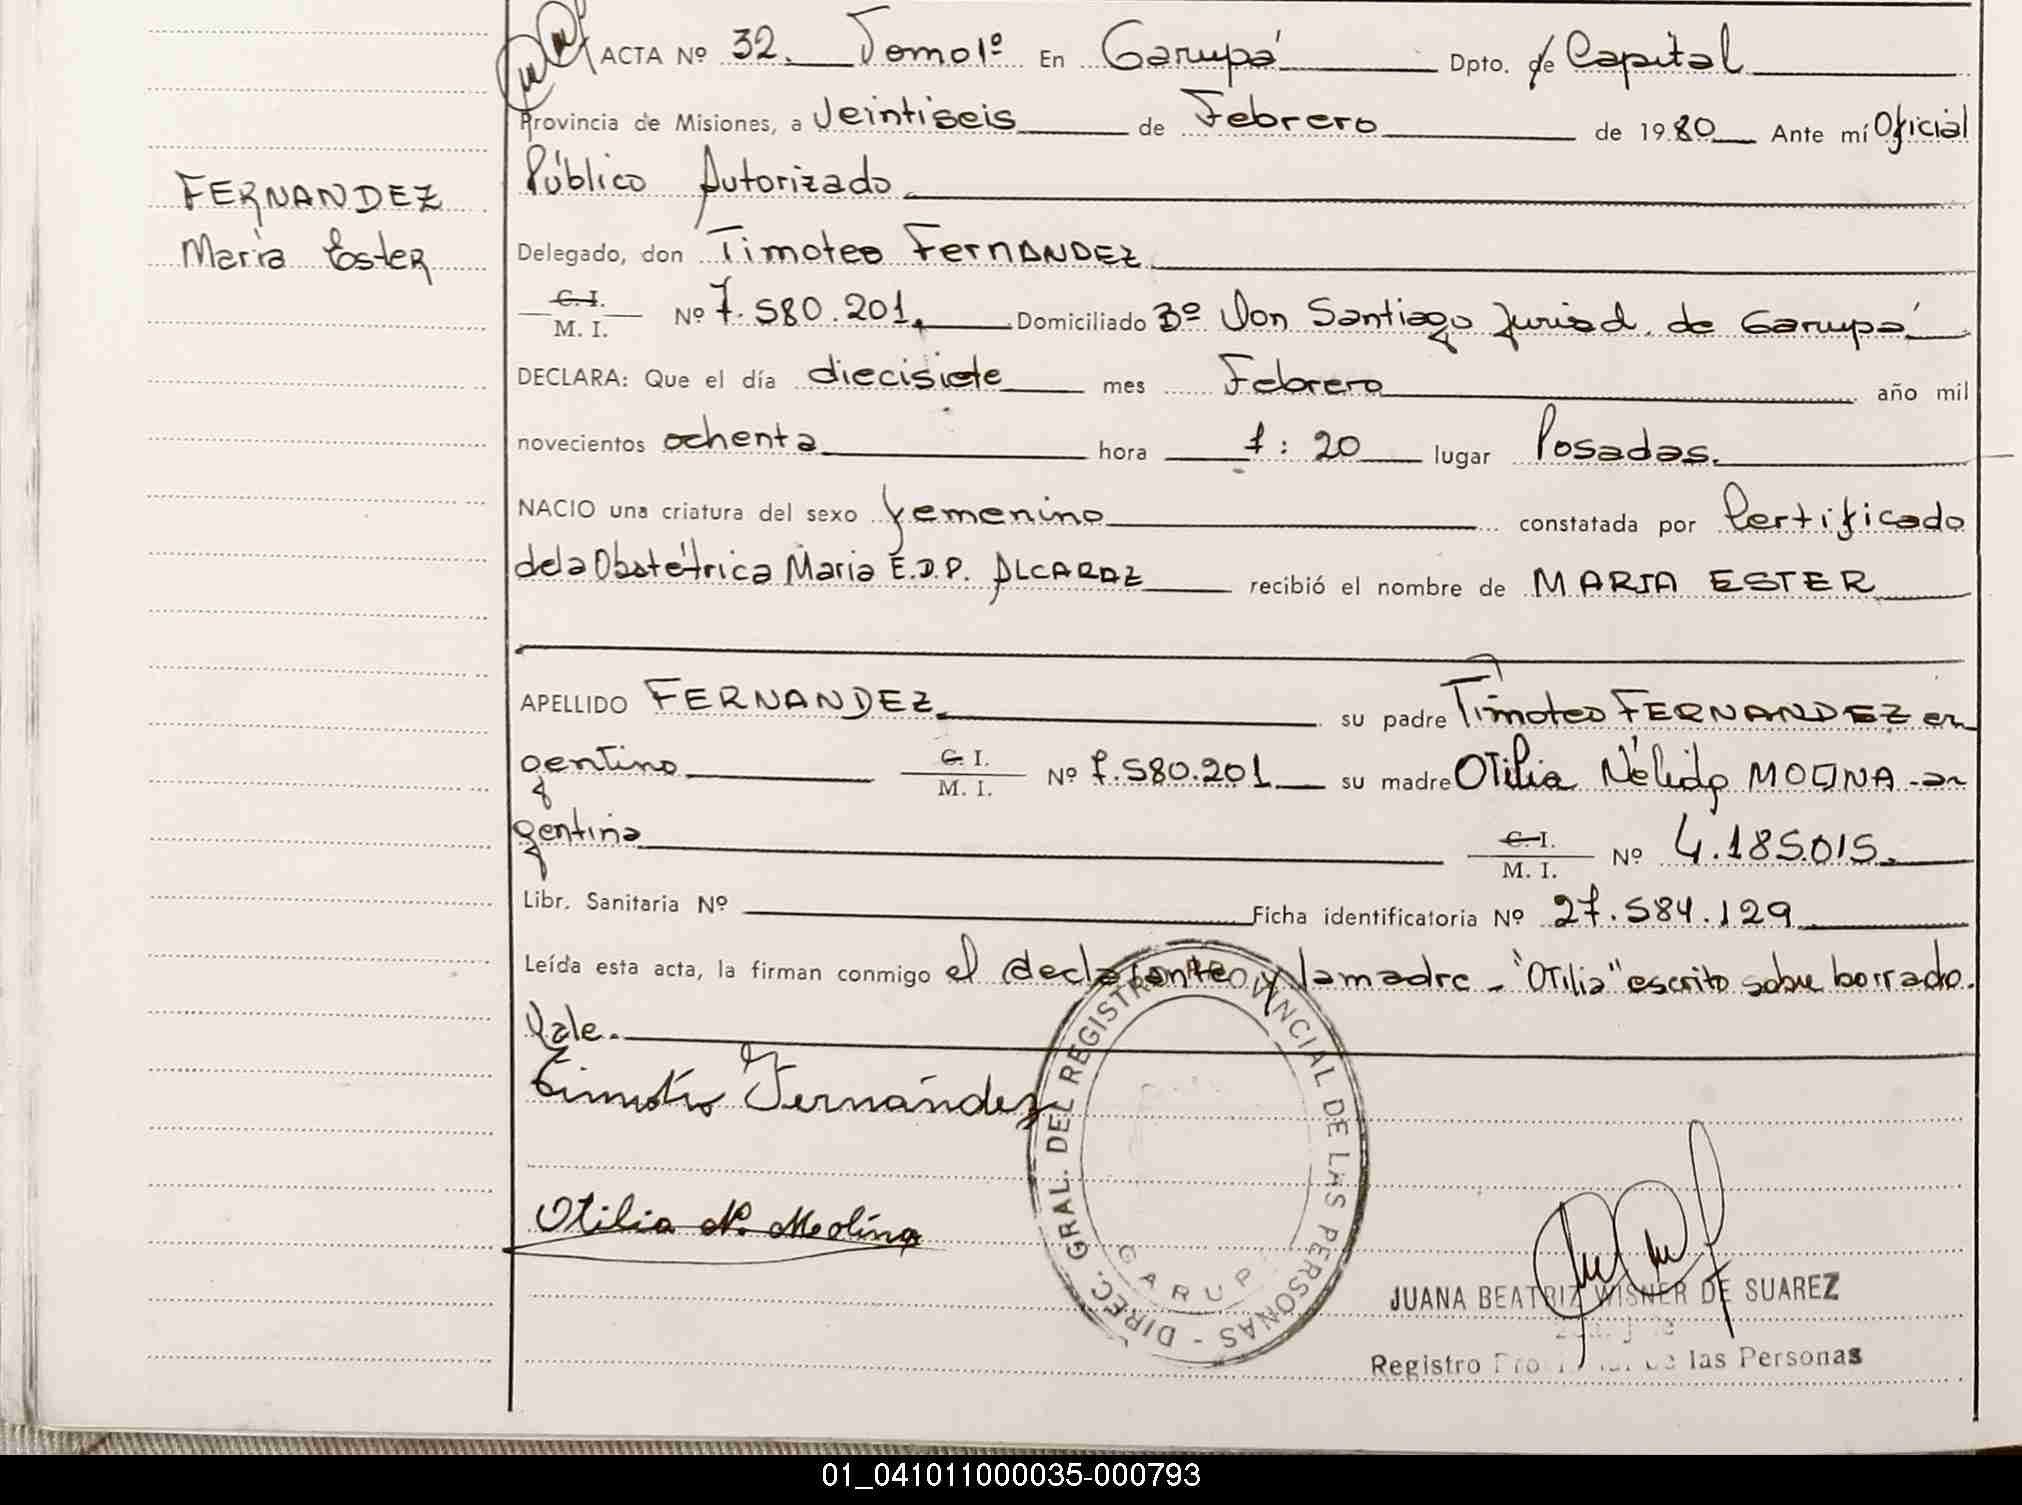 ACTA Nº 32. Tomo 1º En Garupá Dpto. de Capital
Provincia de Misiones, a Veintiseis de Febrero de 1980 Ante mí Oficial
Público Autorizado
FERNANDEZ
María Ester
Delegado, don Timoteo FERNANDEZ
C. I.
M. I. Nº 7.580.201. Domiciliado Bº Don Santiago Jurisd. de Garupá
DECLARA: Que el día diecisiete mes Febrero año mil
novecientos ochenta hora 1:20 lugar Posadas.
NACIO una criatura del sexo femenino constatada por Certificado
de la Obstétrica Maria E.D.P. ALCARAZ recibió el nombre de MARIA ESTER
APELLIDO FERNANDEZ su padre Timoteo FERNANDEZ ar
gentino C. I. M. I. Nº 7.580.201 su madre OTilia Nélida MOLINA - ar
gentina C. I. M. I. Nº 4.185.015.
Libr. Sanitaria Nº Ficha identificatoria Nº 27.584.129
Leída esta acta, la firman conmigo el declarante y la madre - "OTilia" escrito sobre borrado.
Vale.
Timoteo Fernández
Otilia N. Molina
DIREC. GRAL. DEL REGISTRO PROVINCIAL DE LAS PERSONAS -
GARUP
JUANA BEATRIZ WISNER DE SUAREZ
Registro de las Personas
01_041011000035-000793